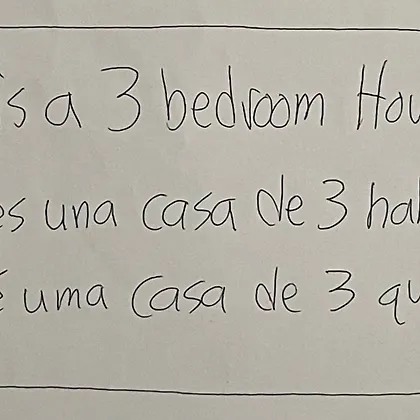 is a 3 bedroom Hou
es una casa de 3 hab
é uma casa de 3 qu